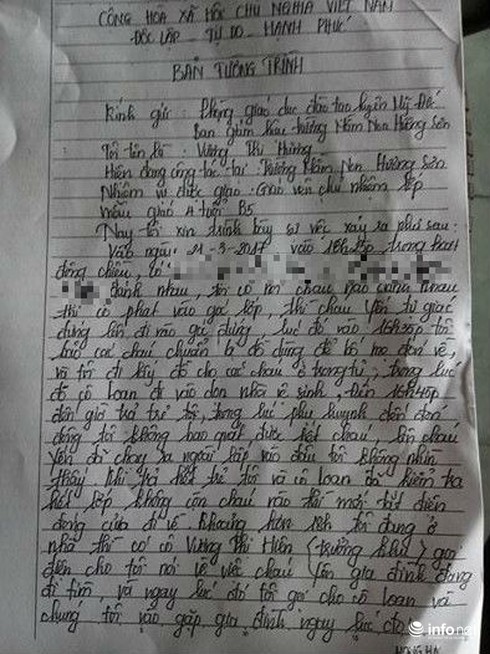 CỘNG HÒA XÃ HỘI CHỦ NGHĨA VIỆT NAM
ĐỘC LẬP - TỰ DO - HẠNH PHÚC
BẢN TƯỜNG TRÌNH
Kính gửi: Phòng giáo dục đào tạo huyện Mỹ Đức
Ban giám hiệu trường Mầm Non Hương Sơn
Tôi tên là: Vương Thị Hương
Hiện đang công tác tại: Trường Mầm Non Hương Sơn
Nhiệm vụ được giao: Giáo viên chủ nhiệm lớp
mẫu giáo 4 tuổi B5
Nay tôi xin trình bày sự việc xảy ra như sau:
Vào ngày: 21-3-2017 vào 16h25p trong hoạt
động chiều, có
đánh nhau, tôi có nói cháu nào đánh nhau
thì cô phạt vào góc lớp, thì cháu Yến tự giác
đứng lên đi vào góc đứng, lúc đó vào 16h35p tôi
bảo các cháu chuẩn bị đồ dùng để bố mẹ đón về,
và tôi đi lấy đồ cho các cháu ở trong tủ, trong lúc
đó cô Loan đi vào dọn nhà vệ sinh, Đến 16h40p
đến giờ trả trẻ tôi, trong lúc phụ huynh đến đón
đông tôi không bao quát được hết cháu, nên cháu
Yến đã chạy ra ngoài lớp vào đâu tôi không nhìn
thấy. Khi trả hết trẻ tôi và cô Loan đã kiểm tra
hết lớp không còn cháu nào thì mới tắt điện
đóng cửa đi về. Khoảng hơn 18h tôi đang ở
nhà thì có cô Vương Thị Hiên (trưởng khu) gọi
điện cho tôi nói về việc cháu Yến gia đình đang
đi tìm, và ngay lúc đó tôi gọi cho cô Loan và
chúng tôi vào gặp gia đình ngay lúc đó
infonet
HỒNG HÀ